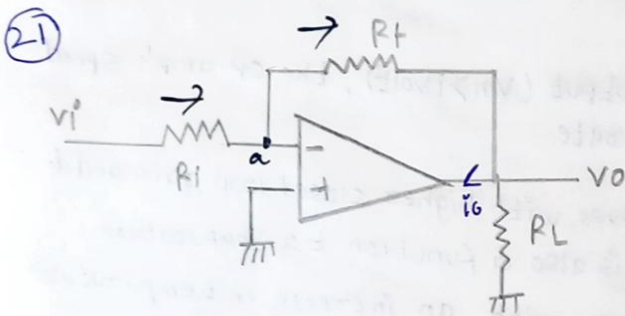 21
Rf
Vi
Ri
a
-
+
io
VO
RL